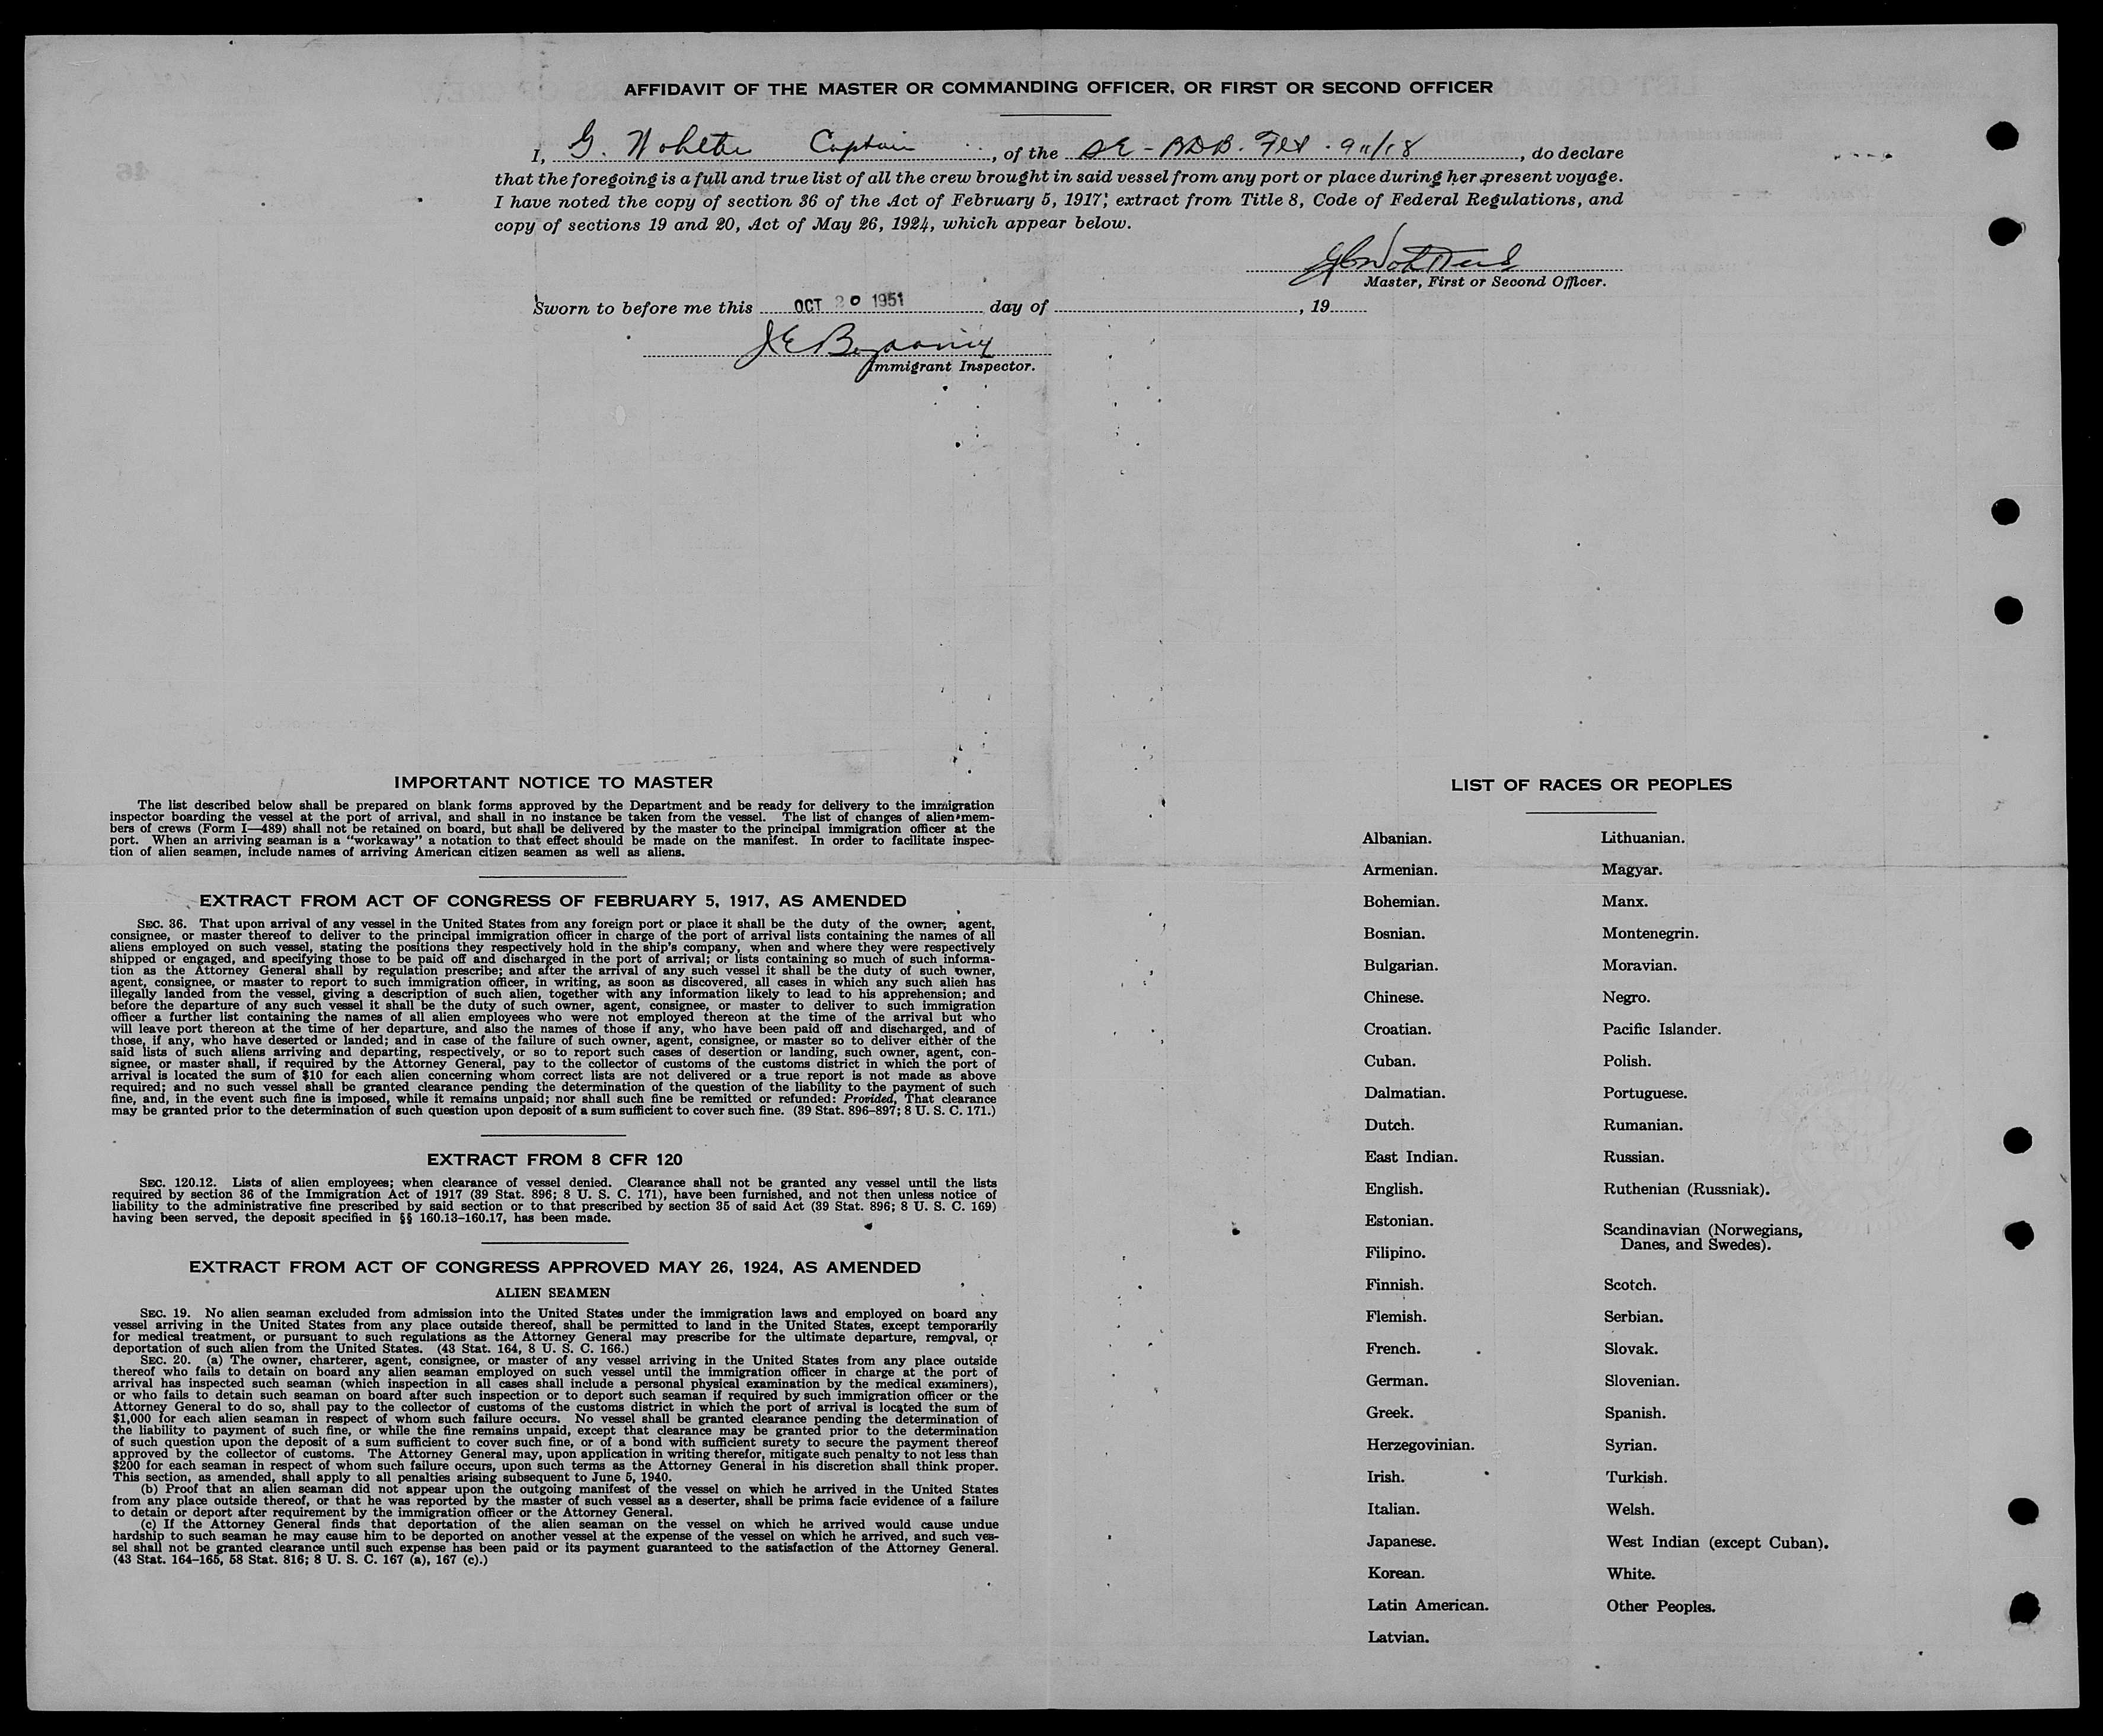 AFFIDAVIT OF THE MASTER OR COMMANDING OFFICER, OR FIRST OR SECOND OFFICER
I, G. Captain, of the SE-BDB. , do declare
that the foregoing is a full and true list of all the crew brought in said vessel from any port or place during her present voyage.
I have noted the copy of section 36 of the Act of February 5, 1917, extract from Title 8, Code of Federal Regulations, and
copy of sections 19 and 20, Act of May 26, 1924, which appear below.
Master, First or Second Officer.
Sworn to before me this OCT 20 1951 day of , 19
Immigrant Inspector.
IMPORTANT NOTICE TO MASTER
The list described below shall be prepared on blank forms approved by the Department and be ready for delivery to the immigration
inspector boarding the vessel at the port of arrival, and shall in no instance be taken from the vessel. The list of changes of alien mem-
bers of crews (Form I—489) shall not be retained on board, but shall be delivered by the master to the principal immigration officer at the
port. When an arriving seaman is a "workaway" a notation to that effect should be made on the manifest. In order to facilitate inspec-
tion of alien seamen, include names of arriving American citizen seamen as well as aliens.
EXTRACT FROM ACT OF CONGRESS OF FEBRUARY 5, 1917, AS AMENDED
SEC. 36. That upon arrival of any vessel in the United States from any foreign port or place it shall be the duty of the owner, agent,
consignee, or master thereof to deliver to the principal immigration officer in charge of the port of arrival lists containing the names of all
aliens employed on such vessel, stating the positions they respectively hold in the ship's company, when and where they were respectively
shipped or engaged, and specifying those to be paid off and discharged in the port of arrival; or lists containing so much of such informa-
tion as the Attorney General shall by regulation prescribe; and after the arrival of any such vessel it shall be the duty of such owner,
agent, consignee, or master to report to such immigration officer, in writing, as soon as discovered, all cases in which any such alien has
illegally landed from the vessel, giving a description of such alien, together with any information likely to lead to his apprehension; and
before the departure of any such vessel it shall be the duty of such owner, agent, consignee, or master to deliver to such immigration
officer a further list containing the names of all alien employees who were not employed thereon at the time of the arrival but who
will leave port thereon at the time of her departure, and also the names of those if any, who have been paid off and discharged, and of
those, if any, who have deserted or landed; and in case of the failure of such owner, agent, consignee, or master so to deliver either of the
said lists of such aliens arriving and departing, respectively, or so to report such cases of desertion or landing, such owner, agent, con-
signee, or master shall, if required by the Attorney General, pay to the collector of customs of the customs district in which the port of
arrival is located the sum of $10 for each alien concerning whom correct lists are not delivered or a true report is not made as above
required; and no such vessel shall be granted clearance pending the determination of the question of the liability to the payment of such
fine, and, in the event such fine is imposed, while it remains unpaid; nor shall such fine be remitted or refunded: Provided, That clearance
may be granted prior to the determination of such question upon deposit of a sum sufficient to cover such fine. (39 Stat. 896–897; 8 U. S. C. 171.)
EXTRACT FROM 8 CFR 120
SEC. 120.12. Lists of alien employees; when clearance of vessel denied. Clearance shall not be granted any vessel until the lists
required by section 36 of the Immigration Act of 1917 (39 Stat. 896; 8 U. S. C. 171), have been furnished, and not then unless notice of
liability to the administrative fine prescribed by said section or to that prescribed by section 35 of said Act (39 Stat. 896; 8 U. S. C. 169)
having been served, the deposit specified in §§ 160.13–160.17, has been made.
EXTRACT FROM ACT OF CONGRESS APPROVED MAY 26, 1924, AS AMENDED
ALIEN SEAMEN
SEC. 19. No alien seaman excluded from admission into the United States under the immigration laws and employed on board any
vessel arriving in the United States from any place outside thereof, shall be permitted to land in the United States, except temporarily
for medical treatment, or pursuant to such regulations as the Attorney General may prescribe for the ultimate departure, removal, or
deportation of such alien from the United States. (43 Stat. 164, 8 U. S. C. 166.)
SEC. 20. (a) The owner, charterer, agent, consignee, or master of any vessel arriving in the United States from any place outside
thereof who fails to detain on board any alien seaman employed on such vessel until the immigration officer in charge at the port of
arrival has inspected such seaman (which inspection in all cases shall include a personal physical examination by the medical examiners),
or who fails to detain such seaman on board after such inspection or to deport such seaman if required by such immigration officer or the
Attorney General to do so, shall pay to the collector of customs of the customs district in which the port of arrival is located the sum of
$1,000 for each alien seaman in respect of whom such failure occurs. No vessel shall be granted clearance pending the determination of
the liability to payment of such fine, or while the fine remains unpaid, except that clearance may be granted prior to the determination
of such question upon the deposit of a sum sufficient to cover such fine, or of a bond with sufficient surety to secure the payment thereof
approved by the collector of customs. The Attorney General may, upon application in writing therefor, mitigate such penalty to not less than
$200 for each seaman in respect of whom such failure occurs, upon such terms as the Attorney General in his discretion shall think proper.
This section, as amended, shall apply to all penalties arising subsequent to June 5, 1940.
(b) Proof that an alien seaman did not appear upon the outgoing manifest of the vessel on which he arrived in the United States
from any place outside thereof, or that he was reported by the master of such vessel as a deserter, shall be prima facie evidence of a failure
to detain or deport after requirement by the immigration officer or the Attorney General.
(c) If the Attorney General finds that deportation of the alien seaman on the vessel on which he arrived would cause undue
hardship to such seaman he may cause him to be deported on another vessel at the expense of the vessel on which he arrived, and such ves-
sel shall not be granted clearance until such expense has been paid or its payment guaranteed to the satisfaction of the Attorney General.
(43 Stat. 164–165, 58 Stat. 816; 8 U. S. C. 167 (a), 167 (c).)
LIST OF RACES OR PEOPLES
Albanian.
Armenian.
Bohemian.
Bosnian.
Bulgarian.
Chinese.
Croatian.
Cuban.
Dalmatian.
Dutch.
East Indian.
English.
Estonian.
Filipino.
Finnish.
Flemish.
French.
German.
Greek.
Herzegovinian.
Irish.
Italian.
Japanese.
Korean.
Latin American.
Latvian.
Lithuanian.
Magyar.
Manx.
Montenegrin.
Moravian.
Negro.
Pacific Islander.
Polish.
Portuguese.
Rumanian.
Russian.
Ruthenian (Russniak).
Scandinavian (Norwegians,
Danes, and Swedes).
Scotch.
Serbian.
Slovak.
Slovenian.
Spanish.
Syrian.
Turkish.
Welsh.
West Indian (except Cuban).
White.
Other Peoples.